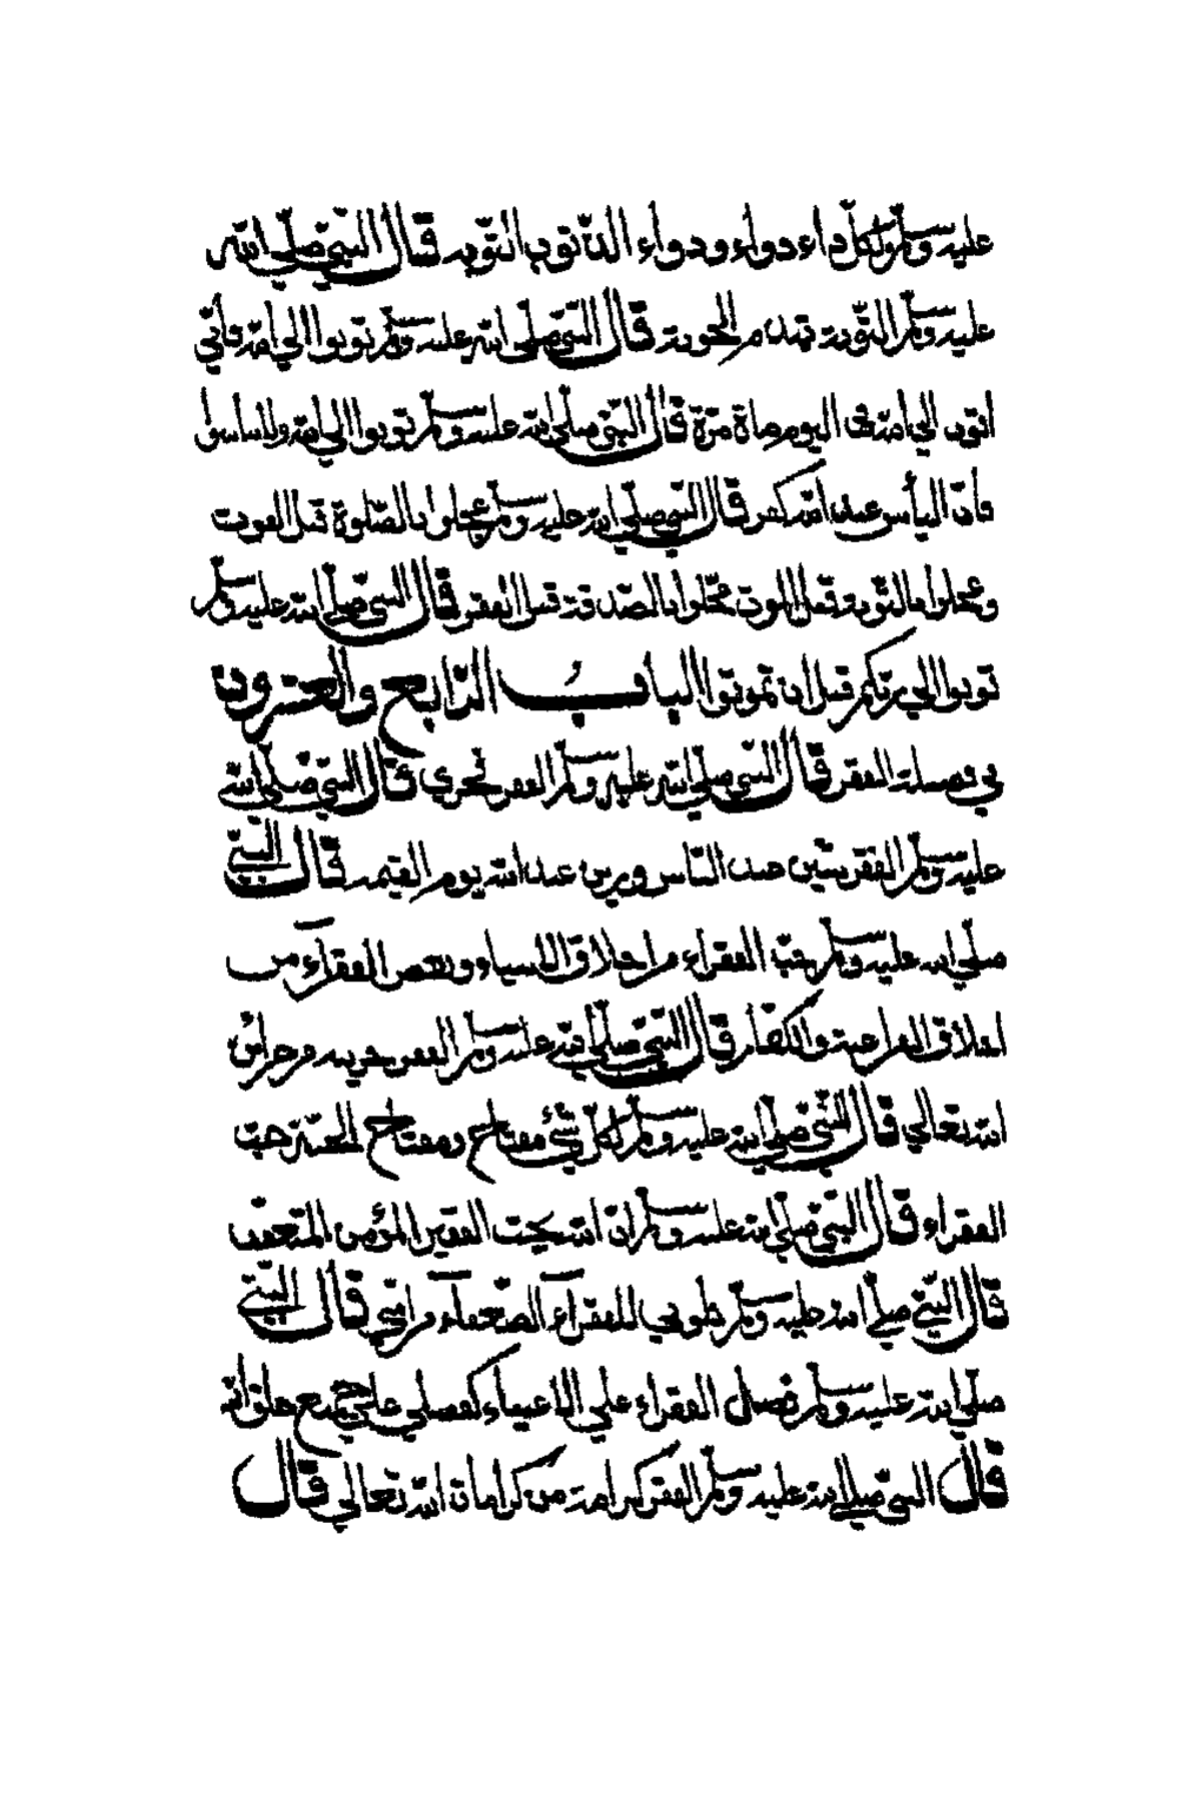 عليه وسلم لكل داء دواء ودواء الذنوب التوبه قال النبي صلى الله
عليه وسلم التوبة تهدم الحوبة قال النبي صلى الله عليه وسلم توبوا الى الله فاني
اتوب الى الله فى اليوم ماة مرة قال النبي صلى الله عليه وسلم توبوا الى الله ولا تياسوا
فان الياس عند الله كفر قال النبي صلى الله عليه وسلم عجلوا بالصلوة قبل الفوت
وعجلوا بالتوبة قبل الموت عجلوا بالصدقة قبل الفقر قال النبي صلى الله عليه وسلم
توبوا الى ربكم قبل ان تموتوا الباب الرابع والعشرون
في فضيلة الفقر قال النبي صلى الله عليه وسلم الفقر فخري قال النبي صلى الله
عليه وسلم الفقر شين عند الناس وزين عند الله يوم القيمة قال النبي
صلى الله عليه وسلم حب الفقراء من اخلاق الانبياء وبغض الفقرآء من
اخلاق الفراعنة والكفار قال النبي صلى الله عليه وسلم الفقر خزينه من خزاين
الله تعالى قال النبي صلى الله عليه وسلم لكل شئ مفتاح ومفتاح الجنة حب
الفقراء قال النبي صلى الله عليه وسلم ان الله يحب الفقير المؤمن المتعفف
قال النبي صلى الله عليه وسلم طوبى للفقرآء الضعفآء من امتي قال النبي
صلى الله عليه وسلم فضل الفقراء على الاغنياء كفضلي على جميع خلق الله
قال النبي صلى الله عليه وسلم الفقر كرامة من كرامات الله تعالى قال